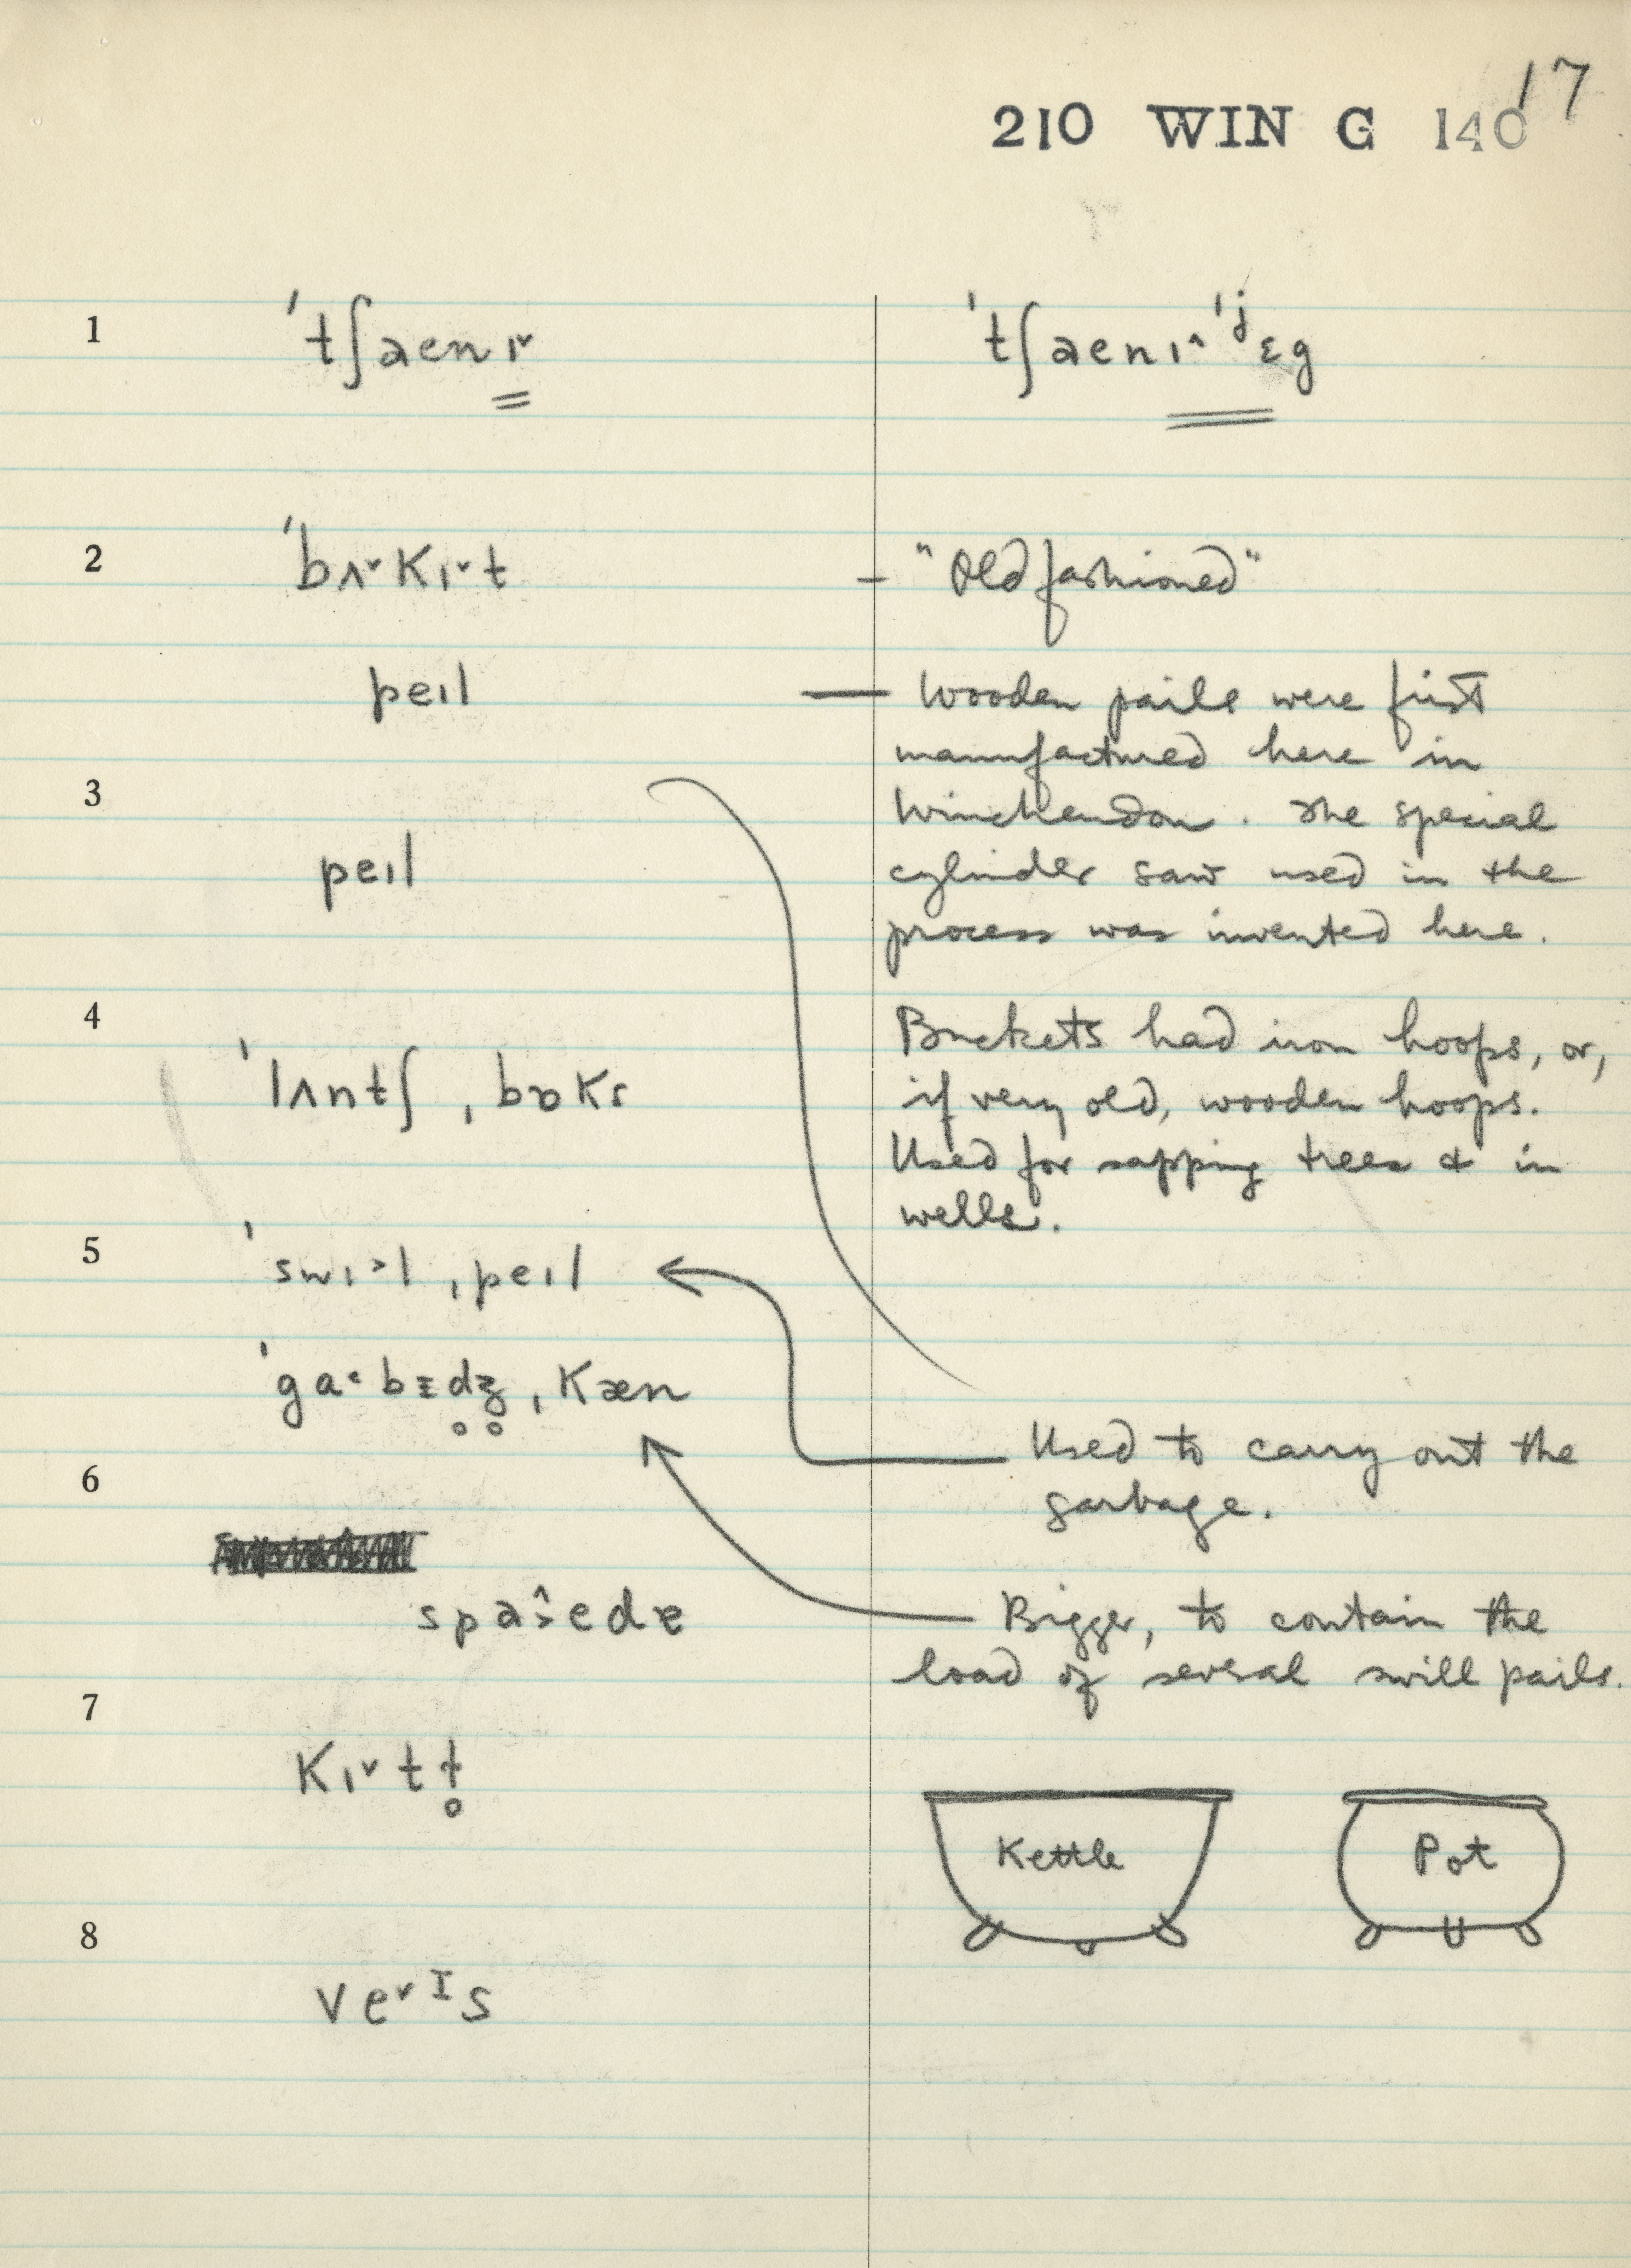 17
210 WIN G 140
1 ˈtʃaenɪ˅ ˈtʃaenɪ˄ˈʲɛg
2 ˈbʌ˅kɪ˅t – "Old fashioned"
peɪl — Wooden pails were first
manufactured here in
3 Winchendon. The special
peɪl cylinder saw used in the
process was invented here.
4 Buckets had iron hoops, or,
ˈlʌntʃˌbɒks if very old, wooden hoops.
Used for sapping trees & in
wells.
5 ˈswɪ˃lˌpeɪl
ˈga˂bɪdʒ̥ˌkæn
Used to carry out the
6 garbage.
Bigger, to contain the
load of several swill pails.
7
kɪ˅tt̥
Kettle Pot
8
ve˅ᴵs